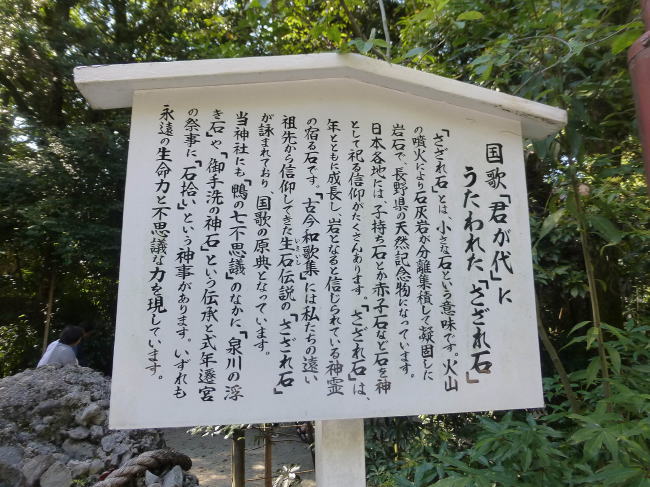 国歌「君が代」に
うたわれた「さざれ石」
「さざれ石」とは、小さな石という意味です。火山
の噴火により石灰岩が分離集積して凝固した
岩石で、長野県の天然記念物になっています。
日本各地には、子持ち石とか赤子石など石を神
として祀る信仰がたくさんあります。「さざれ石」は、
年とともに成長し、岩となると信じられている神霊
の宿る石です。「古今和歌集」には私たちの遠い
祖先から信仰してきた生石伝説の「さざれ石」
いきいし
が詠まれており、国歌の原典となっています。
当神社にも、鴨の七不思議のなかに、「泉川の浮
き石」や、「御手洗の神石」という伝承と式年遷宮
の祭事に「石拾い」という神事があります。いずれも
永遠の生命力と不思議な力を現しています。